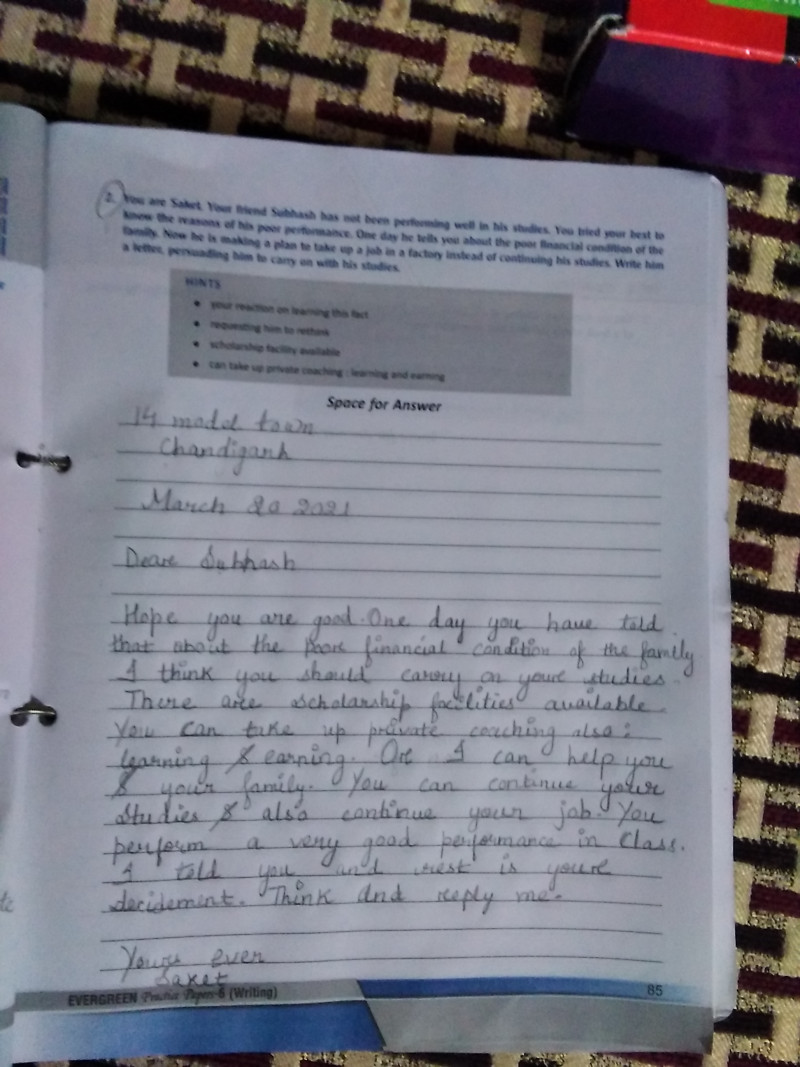 2. You are Saket. Your friend Subhash has not been performing well in his studies. You tried your best to
know the reasons of his poor performance. One day he tells you about the poor financial condition of the
family. Now he is making a plan to take up a job in a factory instead of continuing his studies. Write him
a letter, persuading him to carry on with his studies.
HINTS
• your reaction on learning this fact
• requesting him to rethink
• scholarship facility available
• can take up private coaching : learning and earning
Space for Answer
14 model town
Chandigarh
March 20 2021
Deare Subhash
Hope you are good. One day you have told
that about the poor financial condition of the family
I think you should carry on youre studies.
There are scholarship facilities available.
You can take up private coaching also :
learning & earning. Or I can help you
& your family. You can continue your
studies & also continue your job. You
perform a very good performance in Class.
I told you and rest is youre
decidement. Think and reply me.
Yours ever
Saket
EVERGREEN Practice Papers-6 (Writing)
85